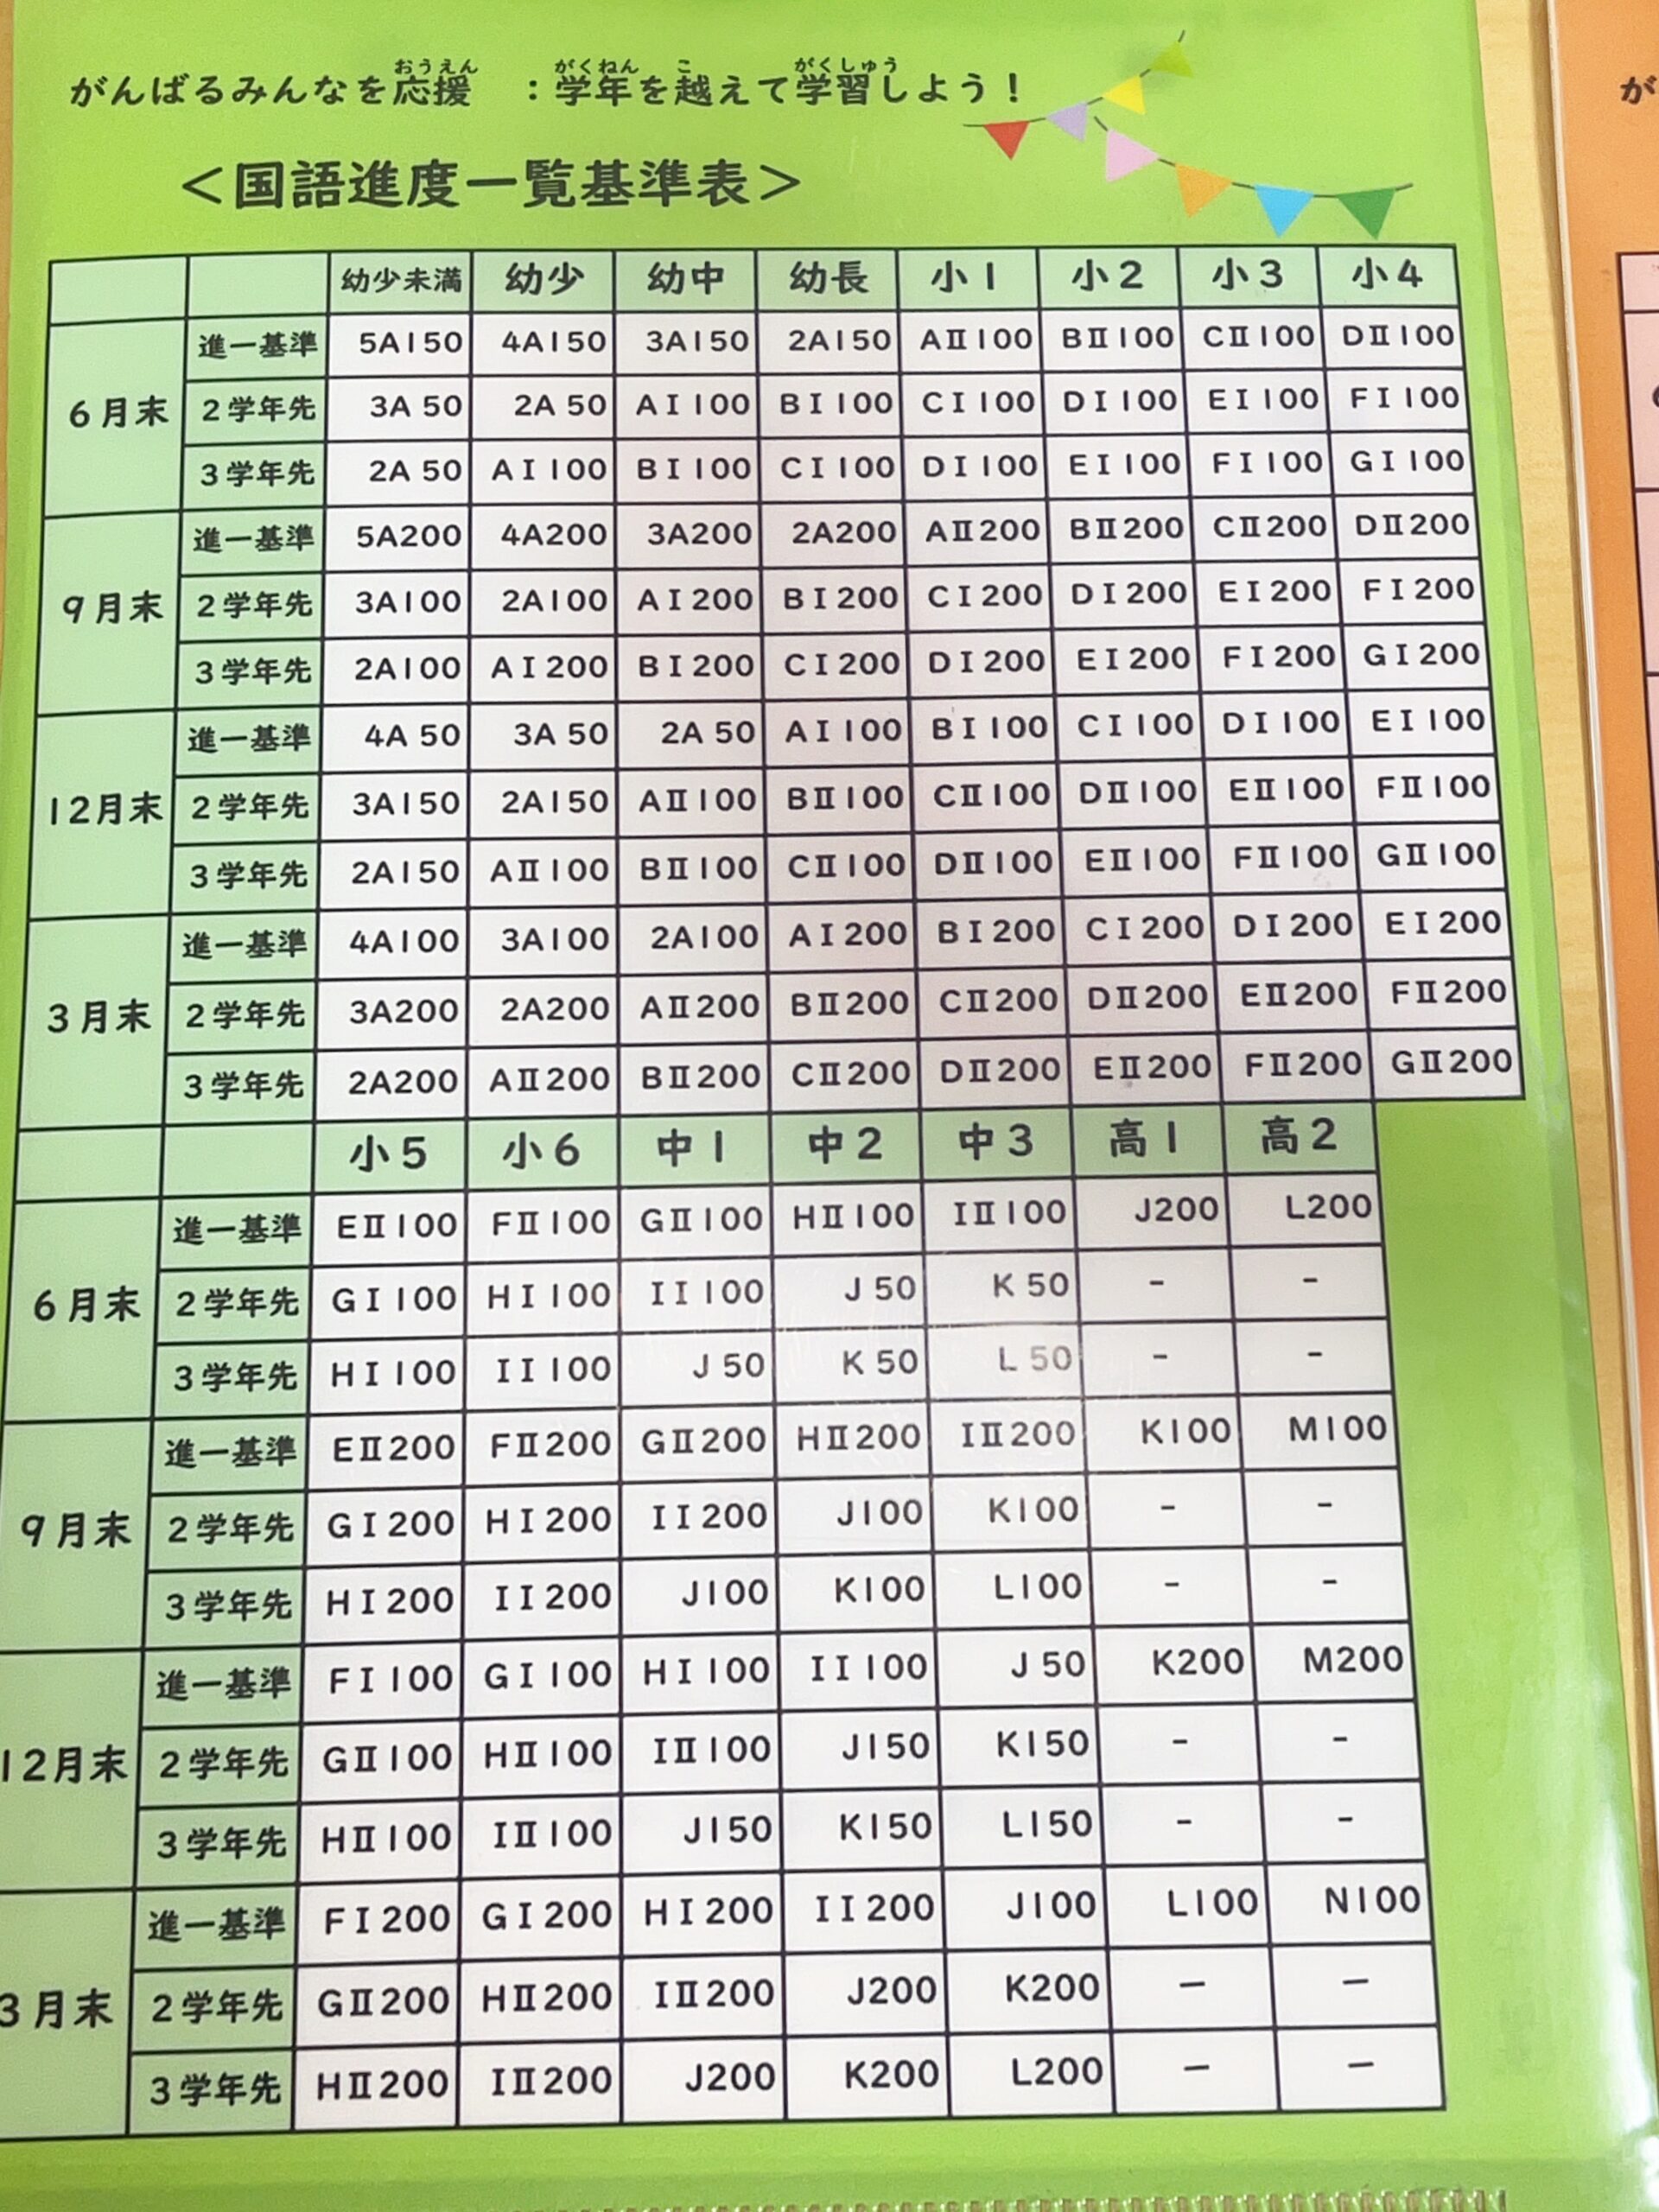 がんばるみんなを応援 ：学年を越えて学習しよう！
おうえん がくねん こ がくしゅう
＜国語進度一覧基準表＞
幼少未満 幼少 幼中 幼長 小1 小2 小3 小4
6月末 進一基準 5A150 4A150 3A150 2A150 AⅡ100 BⅡ100 CⅡ100 DⅡ100
2学年先 3A 50 2A 50 AⅠ100 BⅠ100 CⅠ100 DⅠ100 EⅠ100 FⅠ100
3学年先 2A 50 AⅠ100 BⅠ100 CⅠ100 DⅠ100 EⅠ100 FⅠ100 GⅠ100
9月末 進一基準 5A200 4A200 3A200 2A200 AⅡ200 BⅡ200 CⅡ200 DⅡ200
2学年先 3A100 2A100 AⅠ200 BⅠ200 CⅠ200 DⅠ200 EⅠ200 FⅠ200
3学年先 2A100 AⅠ200 BⅠ200 CⅠ200 DⅠ200 EⅠ200 FⅠ200 GⅠ200
12月末 進一基準 4A 50 3A 50 2A 50 AⅠ100 BⅠ100 CⅠ100 DⅠ100 EⅠ100
2学年先 3A150 2A150 AⅡ100 BⅡ100 CⅡ100 DⅡ100 EⅡ100 FⅡ100
3学年先 2A150 AⅡ100 BⅡ100 CⅡ100 DⅡ100 EⅡ100 FⅡ100 GⅡ100
3月末 進一基準 4A100 3A100 2A100 AⅠ200 BⅠ200 CⅠ200 DⅠ200 EⅠ200
2学年先 3A200 2A200 AⅡ200 BⅡ200 CⅡ200 DⅡ200 EⅡ200 FⅡ200
3学年先 2A200 AⅡ200 BⅡ200 CⅡ200 DⅡ200 EⅡ200 FⅡ200 GⅡ200
小5 小6 中1 中2 中3 高1 高2
6月末 進一基準 EⅡ100 FⅡ100 GⅡ100 HⅡ100 IⅡ100 J200 L200
2学年先 GⅠ100 HⅠ100 IⅠ100 J 50 K 50 - -
3学年先 HⅠ100 IⅠ100 J 50 K 50 L 50 - -
9月末 進一基準 EⅡ200 FⅡ200 GⅡ200 HⅡ200 IⅡ200 K100 M100
2学年先 GⅠ200 HⅠ200 IⅠ200 J100 K100 - -
3学年先 HⅠ200 IⅠ200 J100 K100 L100 - -
12月末 進一基準 FⅠ100 GⅠ100 HⅠ100 IⅠ100 J 50 K200 M200
2学年先 GⅡ100 HⅡ100 IⅡ100 J150 K150 - -
3学年先 HⅡ100 IⅡ100 J150 K150 L150 - -
3月末 進一基準 FⅠ200 GⅠ200 HⅠ200 IⅠ200 J100 L100 N100
2学年先 GⅡ200 HⅡ200 IⅡ200 J200 K200 － －
3学年先 HⅡ200 IⅡ200 J200 K200 L200 － －
が